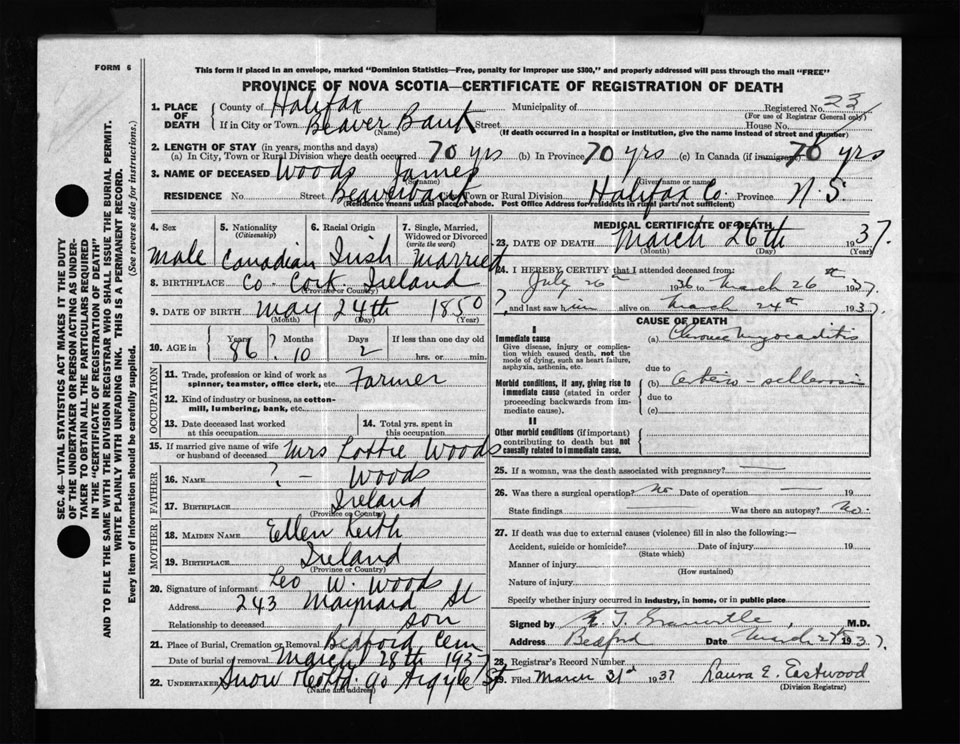 FORM 6
This form if placed in an envelope, marked "Dominion Statistics—Free, penalty for improper use $300," and properly addressed will pass through the mail "FREE"
PROVINCE OF NOVA SCOTIA—CERTIFICATE OF REGISTRATION OF DEATH
SEC. 46—VITAL STATISTICS ACT MAKES IT THE DUTY
OF THE UNDERTAKER OR PERSON ACTING AS UNDER-
TAKER TO OBTAIN ALL THE PARTICULARS REQUIRED
IN THE "CERTIFICATE OF REGISTRATION OF DEATH"
AND TO FILE THE SAME WITH THE DIVISION REGISTRAR WHO SHALL ISSUE THE BURIAL PERMIT.
WRITE PLAINLY WITH UNFADING INK. THIS IS A PERMANENT RECORD.
Every item of information should be carefully supplied. (See reverse side for instructions.)
1. PLACE OF DEATH County of Halifax Municipality of Registered No. 23
(For use of Registrar General only)
If in City or Town Beaver Bank Street House No.
(Name) (If death occurred in a hospital or institution, give the name instead of street and number)
2. LENGTH OF STAY (in years, months and days)
(a) In City, Town or Rural Division where death occurred 70 yrs (b) In Province 70 yrs (c) In Canada (if immigrant) 70 yrs
3. NAME OF DECEASED Woods James
(Surname) (Given name or names)
RESIDENCE No. Street Beaverbank Town or Rural Division Halifax Co. Province N.S.
(Residence means usual place of abode. Post Office Address for Residents in rural parts not sufficient)
4. Sex 5. Nationality (Citizenship) 6. Racial Origin 7. Single, Married, Widowed or Divorced (write the word)
Male Canadian Irish Married
8. BIRTHPLACE Co. Cork Ireland
(Province or Country)
9. DATE OF BIRTH May 24th 1850
(Month) (Day) (Year)
10. AGE in Years 86 ? Months 10 Days 2 If less than one day old
hrs. or min.
OCCUPATION
11. Trade, profession or kind of work as spinner, teamster, office clerk, etc. Farmer
12. Kind of industry or business, as cotton-mill, lumbering, bank, etc.
13. Date deceased last worked at this occupation
14. Total yrs. spent in this occupation
15. If married give name of wife or husband of deceased Mrs Lottie Woods
FATHER
16. NAME ? - Woods
17. BIRTHPLACE Ireland
(Province or Country)
MOTHER
18. MAIDEN NAME Ellen Keith
19. BIRTHPLACE Ireland
(Province or Country)
20. Signature of informant Leo W. Woods
Address 243 Maynard St
Relationship to deceased son
21. Place of Burial, Cremation or Removal Bedford Cem
Date of burial or removal March 28th 1937
22. UNDERTAKER Snow & Co Ltd. 90 Argyle St
(Name and address)
MEDICAL CERTIFICATE OF DEATH
23. DATE OF DEATH March 26th 1937.
(Month) (Day) (Year)
24. I HEREBY CERTIFY that I attended deceased from:
July 26th 1936 to March 26th 1937.
and last saw him alive on March 24th 1937
CAUSE OF DEATH
I
Immediate cause
Give disease, injury or complication which caused death, not the mode of dying, such as heart failure, asphyxia, asthenia, etc.
(a) Chronic Myocaditis
due to
Morbid conditions, if any, giving rise to immediate cause (stated in order proceeding backwards from immediate cause).
(b)
due to
(c)
II
Other morbid conditions (if important) contributing to death but not causally related to immediate cause.
25. If a woman, was the death associated with pregnancy? —
26. Was there a surgical operation? No Date of operation — 19
State findings — Was there an autopsy? No.
27. If death was due to external causes (violence) fill in also the following:—
Accident, suicide or homicide? Date of injury 19
(State which)
Manner of injury
(How sustained)
Nature of injury
Specify whether injury occurred in industry, in home, or in public place
Signed by M.D.
Address Bedford Date March 27th 1937
28. Registrar's Record Number
29. Filed March 31st 1937 Laura E. Eastwood
(Division Registrar)